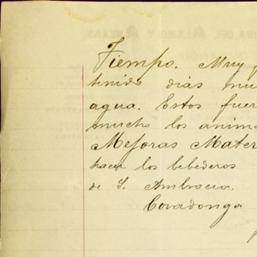 Tiempo. Muy
tenido dias mu
agua. Estos fuer
mucho los anima
Mejoras Mater
hacer los bebederos
de S. Ambrocio.
Covadonga